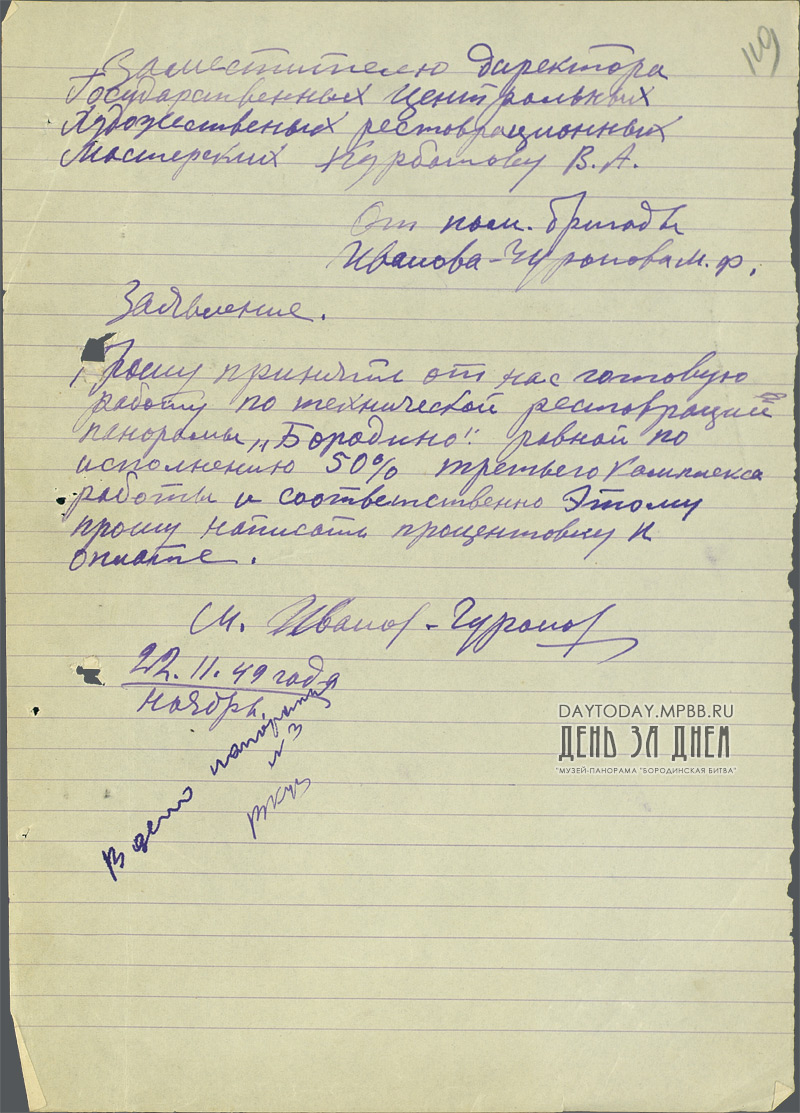 119
Заместителю директора
Государственных Центральных
Художественых реставрационных
Мастерских Курбатову В.А.
От пом. бригады
Иванова-Чуронова м.ф.
Заявление.
Прошу принять от нас готовую
работу по технической реставрации
панорамы „Бородино": равной по
исполнению 50% третьего комплекса
работы и соответственно Этому
прошу написать процентовку к
оплате.
М. Иванов-Чуронов
22.11.49 года
ноябрь
В дело панорамы
N 3
DAYTODAY.MPBB.RU
ДЕНЬ ЗА ДНЕМ
"МУЗЕЙ-ПАНОРАМА "БОРОДИНСКАЯ БИТВА"